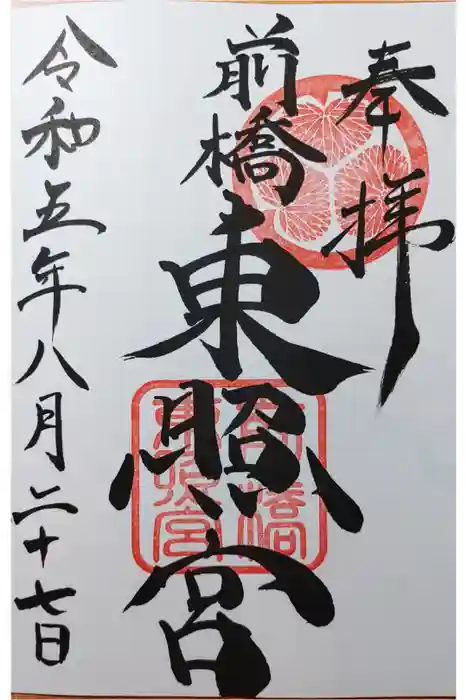 奉拝
前橋
東照宮
令和五年八月二十七日
前橋
東照宮